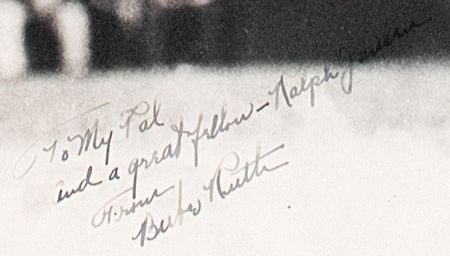 To My Pal
and a great fellow - Ralph
From
Babe Ruth